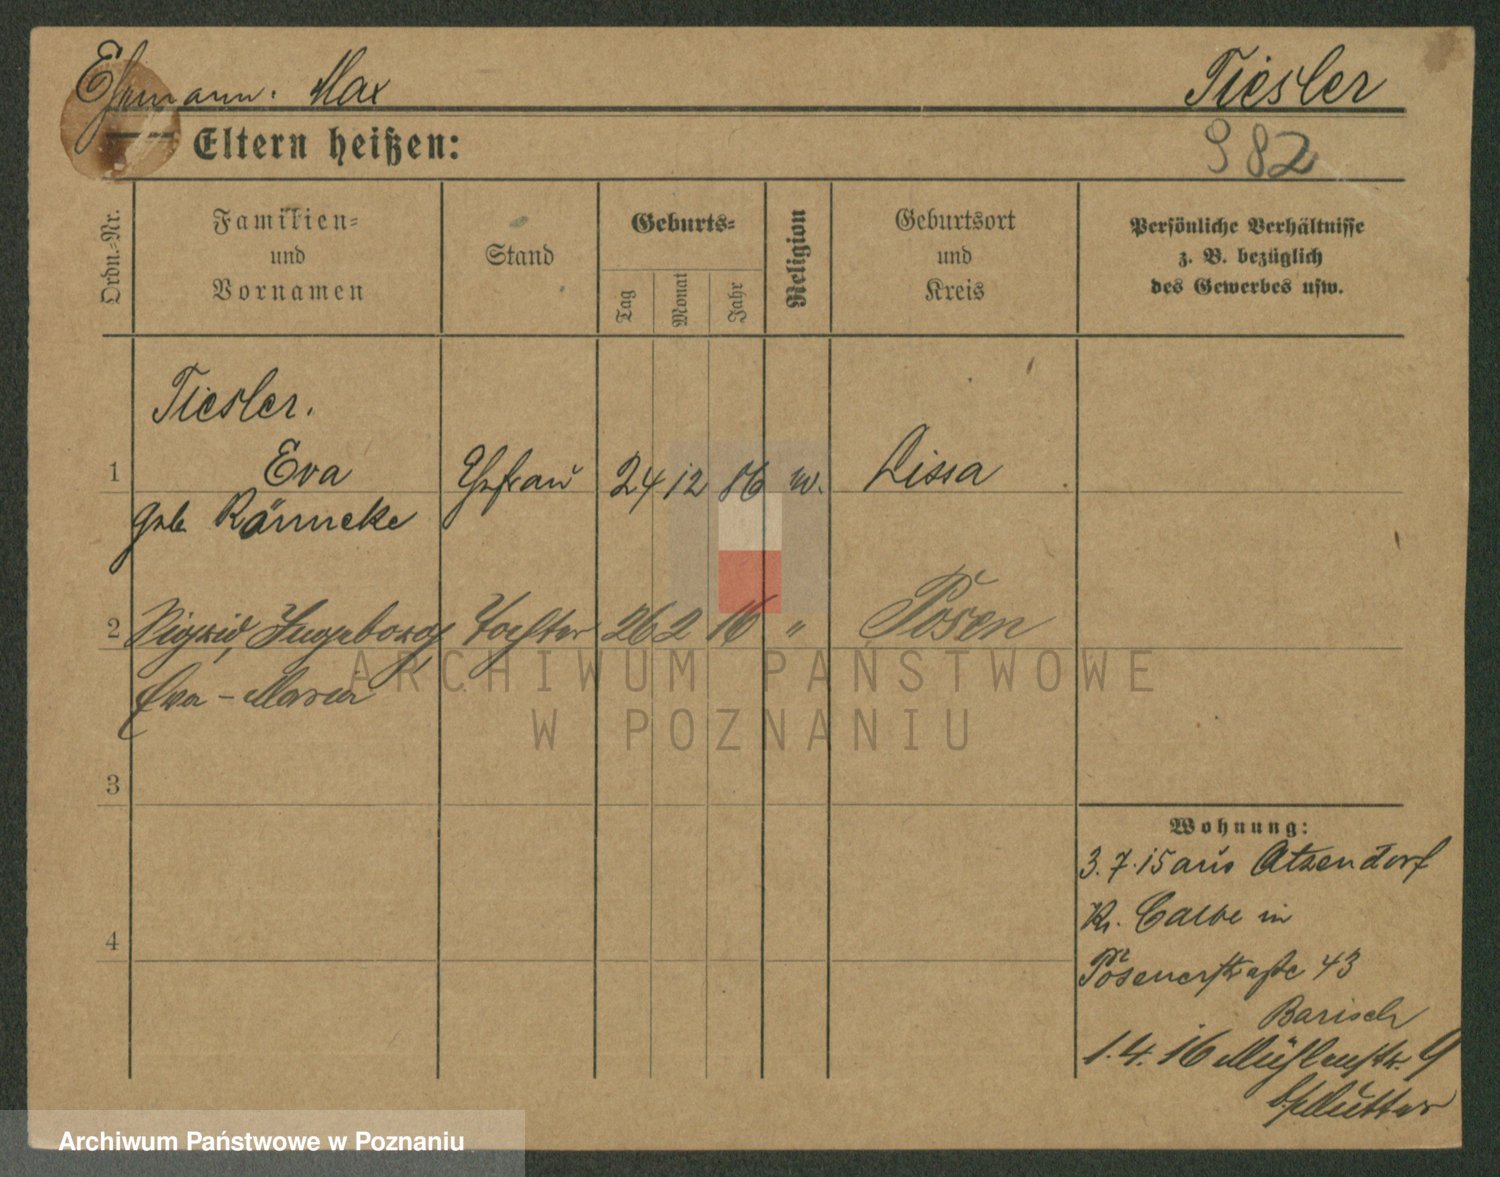 Ehemann. Max
Tiesler
Eltern heißen:
982
Ordn.-Nr.
Familien-
und
Vornamen
Stand
Geburts-
Tag
Monat
Jahr
Religion
Geburtsort
und
Kreis
Persönliche Verhältnisse
z. B. bezüglich
des Gewerbes usw.
Tiesler.
1 Eva Ehefrau 24 12 86 Lissa
geb. Rännecke
2 Sigrid, Ingeborg Tochter 26 2 16 " Posen
Eva - Maria
ARCHIWUM PAŃSTWOWE
W POZNANIU
3
4
Wohnung:
3.7.15 aus Atzendorf
Kr. Calbe in
Posenerstraße 43
Barisch
1.4.16 Mühlenstr. 9
Mutter
Archiwum Państwowe w Poznaniu